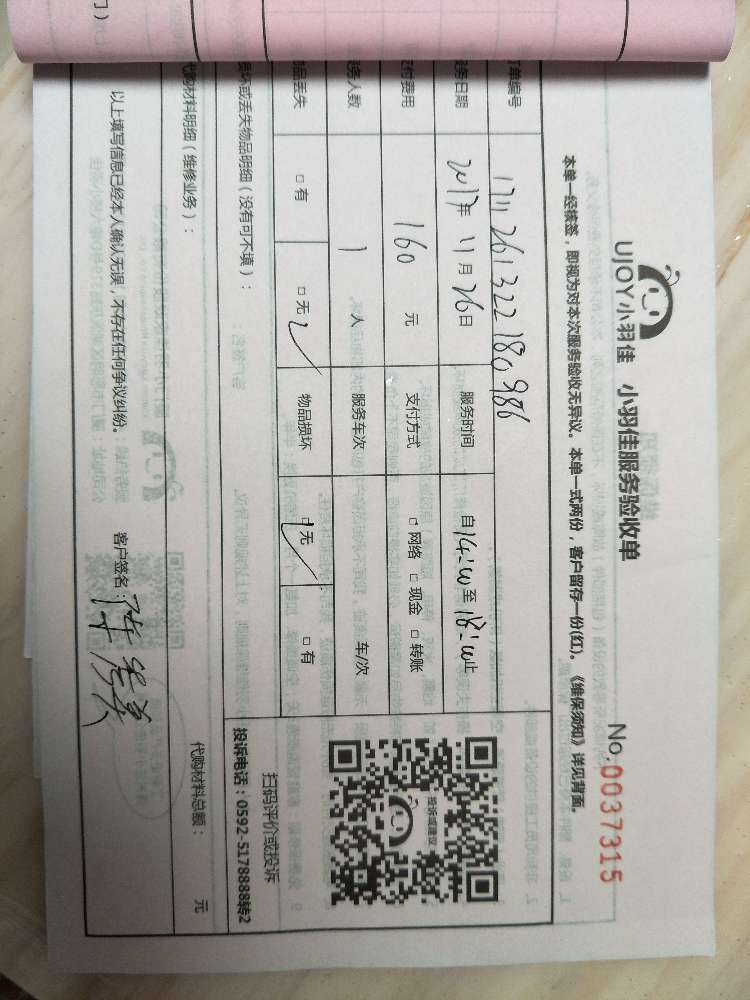 UJOY小羽佳 小羽佳服务验收单
No.0037315
本单一经核签，即视为对本次服务验收无异议。本单一式两份，客户留存一份(红)。《维保须知》详见背面。
订单编号 1711261322180986
服务日期 2017年11月26日 服务时间 自14:00至18:00止
支付费用 160 元 支付方式 □网络 □现金 □转账
服务人数 1 人 服务车次 车/次
物品丢失 □有 □无 ✓ 物品损坏 □无 ✓ □有
投诉或建议
扫码评价或投诉
投诉电话：0592-5178888转2
损坏或丢失物品明细（没有可不填）：
代购材料明细（维修业务）：
代购材料总额： 元
以上填写信息已经本人确认无误，不存在任何争议纠纷。 客户签名：